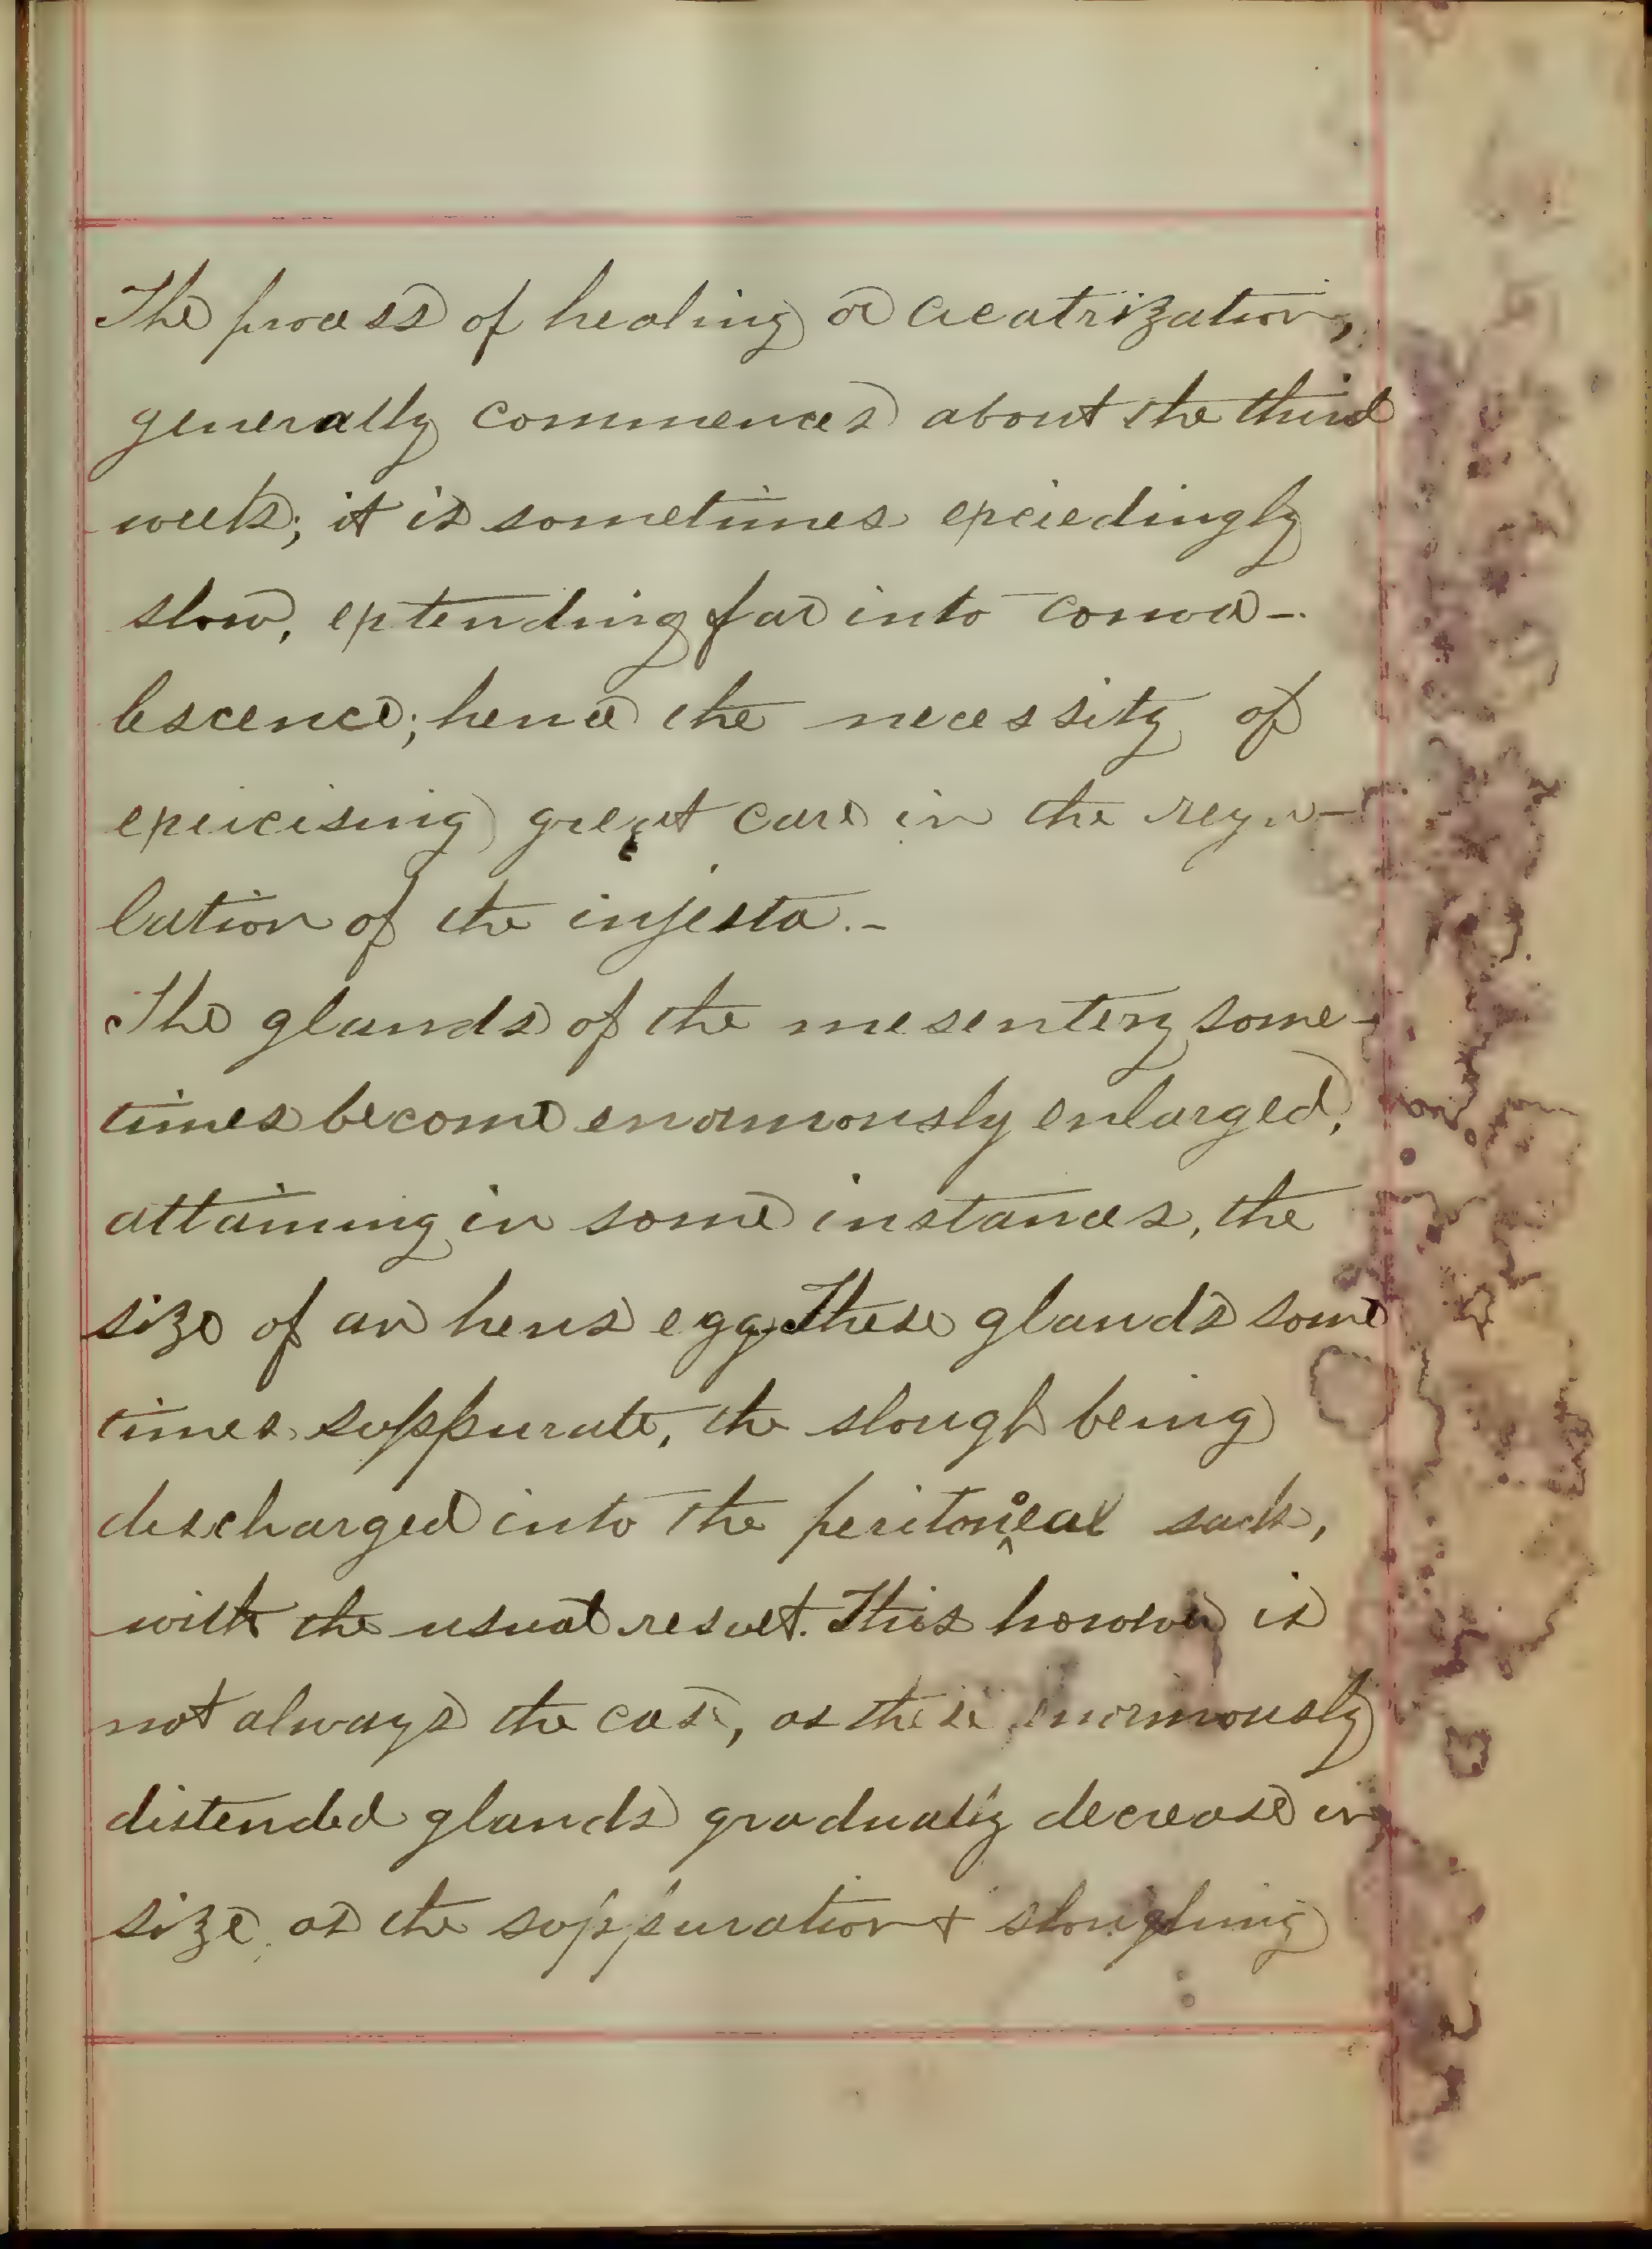 The process of healing or cicatrization,
generally commences about the third
week; it is sometimes exceedingly
slow, extending far into conva-
lescence; hence the necessity of
exercising great care in the regu-
lation of the injesta.-
The glands of the mesentery some-
times become enormously enlarged,
attaining in some instances, the
size of an hens egg. These glands some
times suppurate, the slough being
discharged into the peritoneal sack,
with the usual result. This however is
not always the case, as these enormously
distended glands gradually decrease in
size, as the suppuration & sloughing